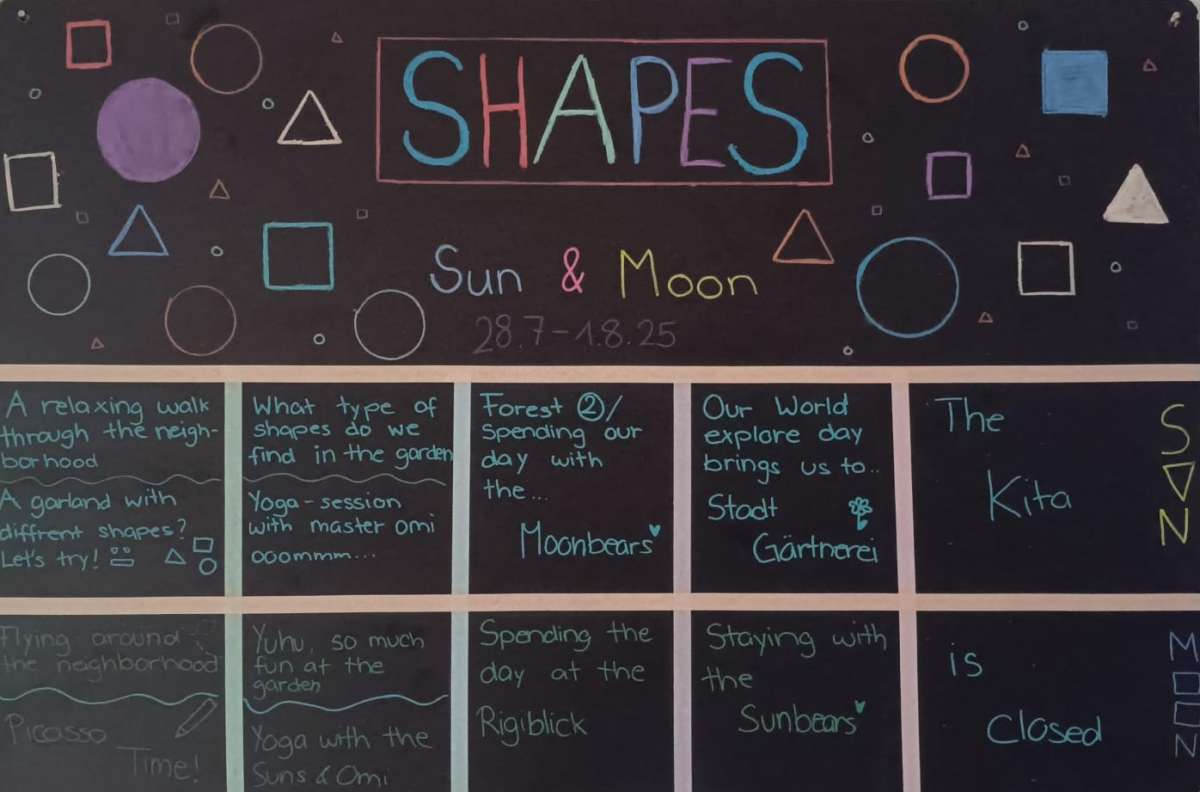 SHAPES
Sun & Moon
28.7-1.8.25
A relaxing walk
through the neigh-
borhood
A garland with
diffrent shapes?
Let's try!
What type of
shapes do we
find in the garden
Yoga-session
with master omi
ooommm...
Forest ②/
Spending our
day with
the...
Moonbears
Our World
explore day
brings us to..
Stadt
Gärtnerei
The
Kita
S
U
N
Flying around
the neighborhood
Picasso
Time!
Yuhu, so much
fun at the
garden
Yoga with the
Suns & Omi
Spending the
day at the
Rigiblick
Staying with
the
Sunbears
is
Closed
M
O
O
N